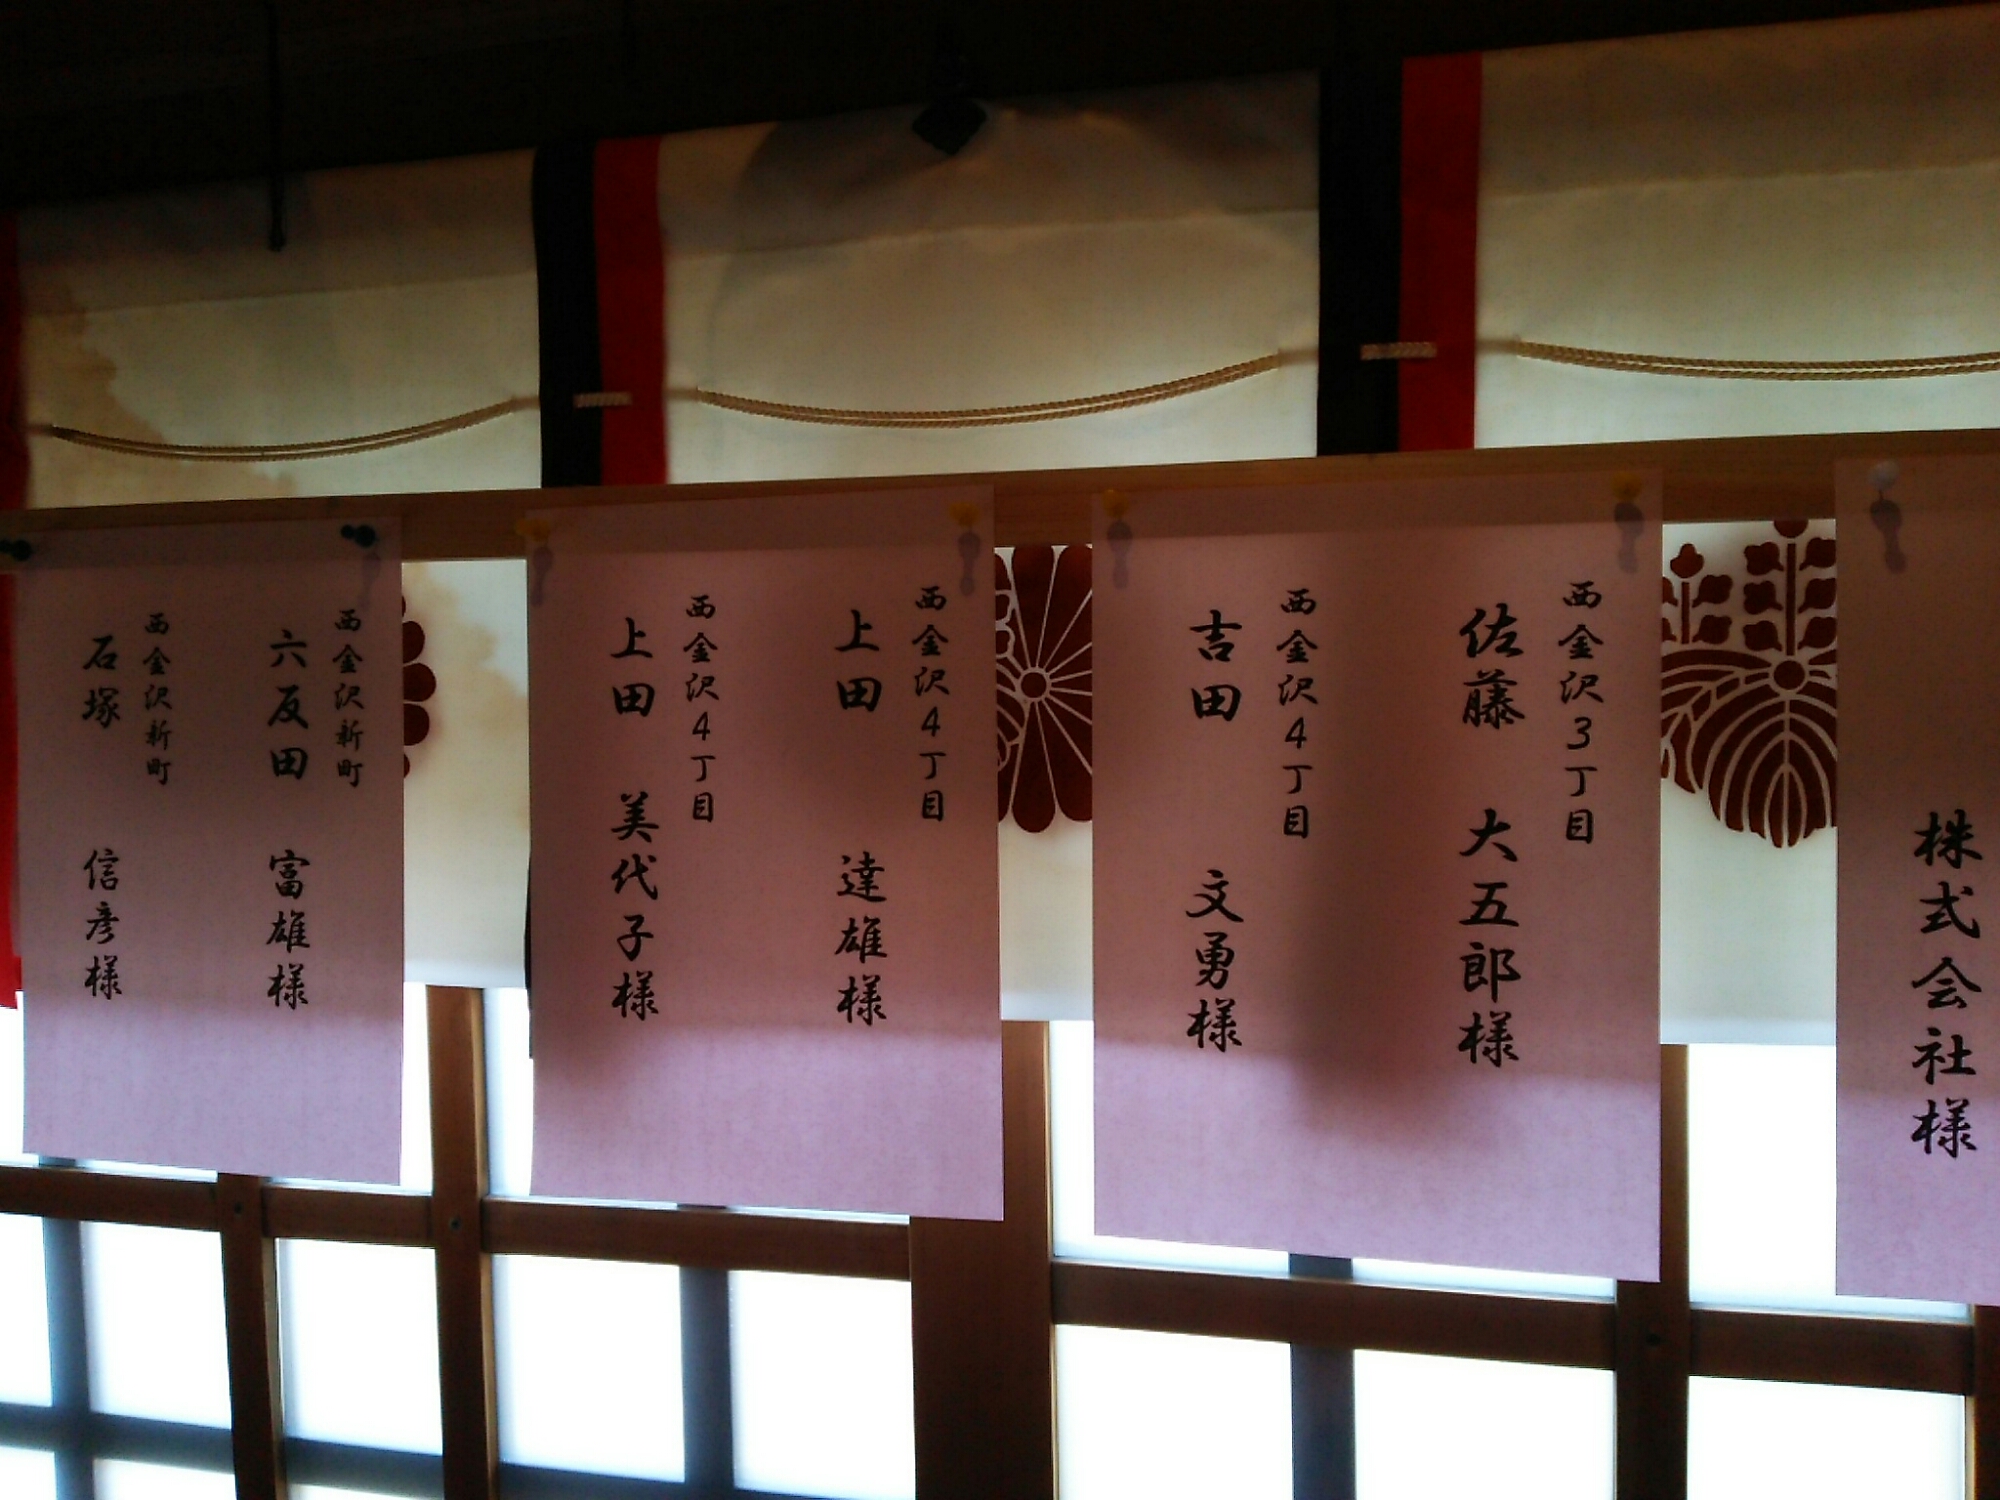 株式会社様
西金沢3丁目
佐藤 大五郎様
西金沢4丁目
吉田 文勇様
西金沢4丁目
上田 達雄様
西金沢4丁目
上田 美代子様
西金沢新町
六反田 富雄様
西金沢新町
石塚 信彦様